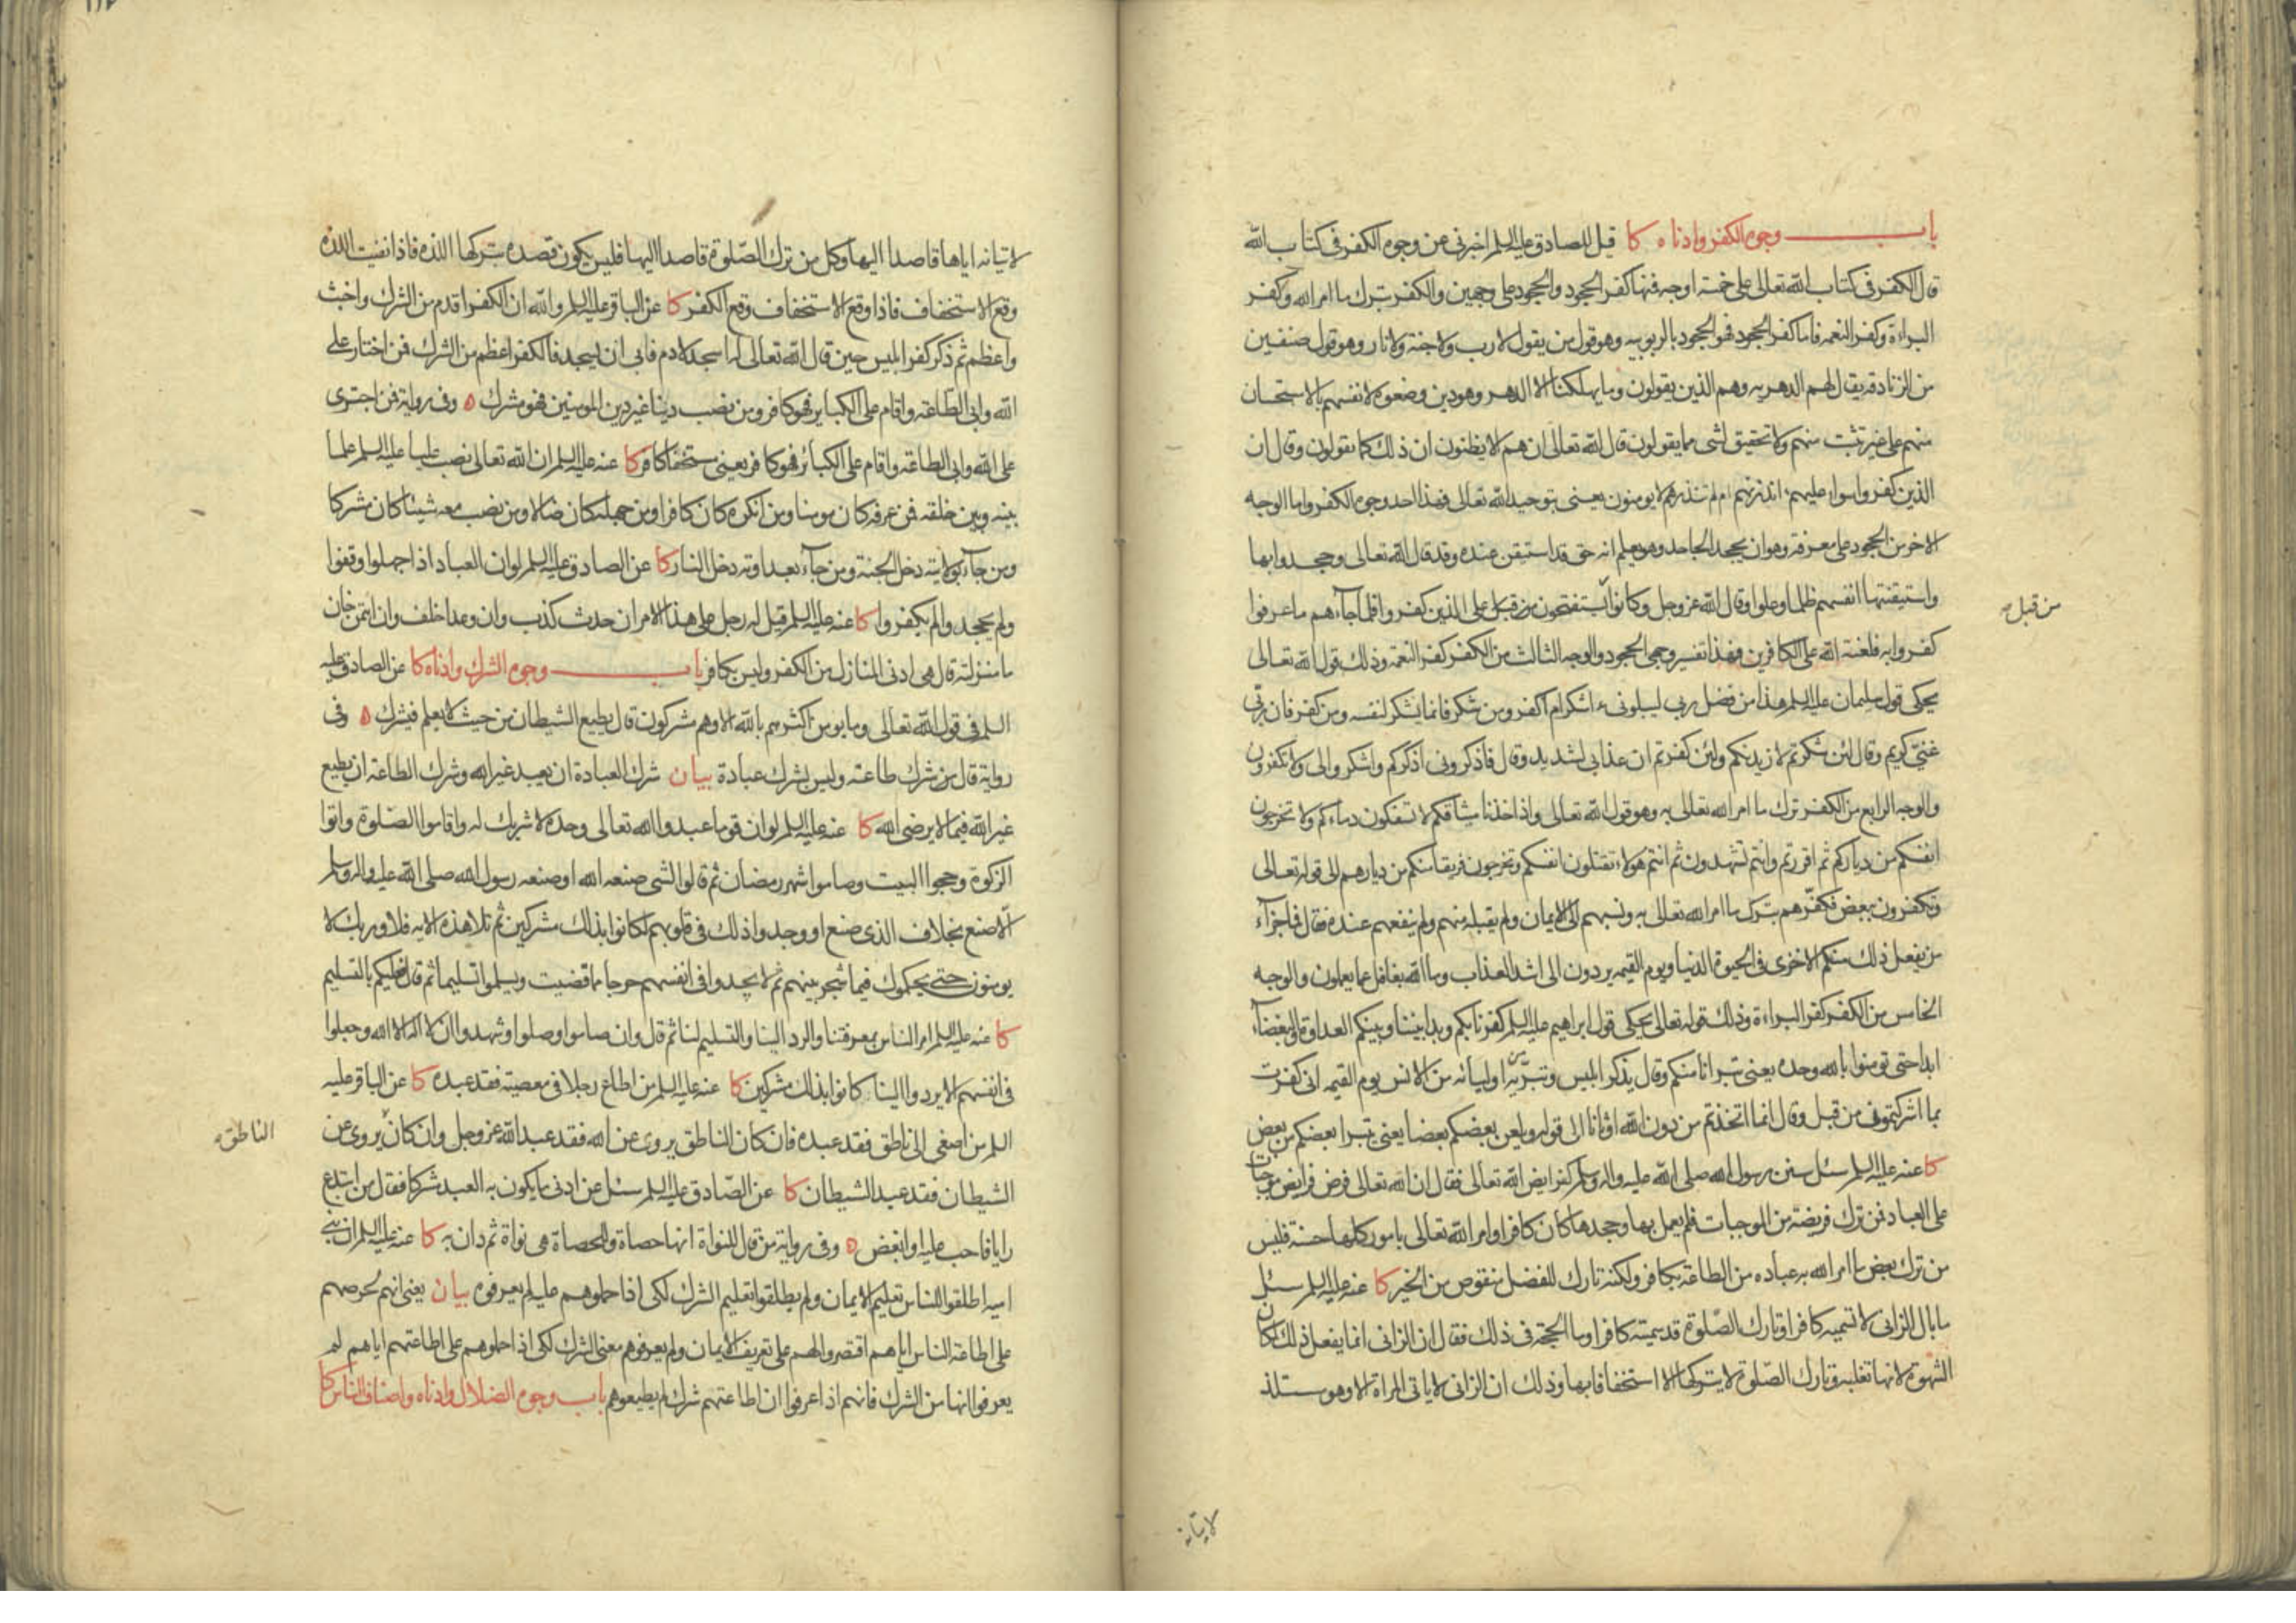 باب وجوه الكفر وادناه كا قيل للصادق عليه السلم اخبرني عن وجوه الكفر في كتاب الله
قال الكفر في كتاب الله تعالى على خمسة اوجه فمنها كفر الجحود والجحود على وجهين والكفر بترك ما امر الله وكفر
البراءة وكفر النعمه فاما كفر الجحود فهو الجحود بالربوبيه وهو قول من يقول لا رب ولا جنة ولا نار وهو قول صنفين
من الزنادقه يقال لهم الدهريه وهم الذين يقولون وما يهلكنا الا الدهر وهو دين وضعوه لانفسهم بالاستحسان
منهم على غير تثبت منهم ولا تحقيق لشى مما يقولون قال الله تعالى ان هم الا يظنون ان ذلك كما يقولون وقال ان
الذين كفروا سواء عليهم ءانذرتهم ام لم تنذرهم لا يومنون يعنى بتوحيد الله تعالى فهذا احد وجوه الكفر واما الوجه
الاخر من الجحود على معرفة وهو ان يجحد الجاحد وهو يعلم انه حق قد استيقن عنده وقد قال الله تعالى وجحدوا بها
واستيقنتها انفسهم ظلما وعلوا وقال الله عز وجل وكانوا يستفتحون من قبل على الذين كفروا فلما جآءهم ما عرفوا
من قبل
كفروا به فلعنة الله على الكافرين فهذا تفسير وجهى الجحود والوجه الثالث من الكفر كفر النعمة وذلك قول الله تعالى
يحكى قول سليمان عليه السلم هذا من فضل ربى ليبلونى ءاشكر ام اكفر ومن شكر فانما يشكر لنفسه ومن كفر فان ربى
غنيّ كريم وقال لئن شكرتم لازيدنكم ولئن كفرتم ان عذابى لشديد وقال فاذكرونى اذكركم واشكروا لى ولا تكفرون
والوجه الرابع من الكفر ترك ما امر الله تعالى به وهو قول الله تعالى واذ اخذنا ميثاقكم لا تسفكون دماءكم ولا تخرجون
انفسكم من دياركم ثم اقررتم وانتم تشهدون ثم انتم هولاء تقتلون انفسكم وتخرجون فريقا منكم من ديارهم الى قوله تعالى
وتكفرون ببعض فكفّرهم بترك ما امر الله تعالى به ونسبهم الى الايمان ولم يقبله منهم ولم ينفعهم عنده فقال فما جزآء
من يفعل ذلك منكم الا خزى فى الحيوة الدنيا ويوم القيمه يردون الى اشد العذاب وما الله بغافل عما يعملون والوجه
الخامس من الكفر كفر البراءة وذلك قوله تعالى يحكى قول ابراهيم عليه السلم كفرنا بكم وبدا بيننا وبينكم العداوة والبغضآء
ابدا حتى تومنوا بالله وحده يعنى تبرانا منكم وقال يذكر ابليس وتبرّيه من اوليائه من الانس يوم القيمه انى كفرت
بما اشركتمون من قبل وقال انما اتخذتم من دون الله اوثانا الى قوله ويلعن بعضكم بعضا يعنى يتبرا بعضكم من بعض
كا عنه عليه السلم سئل سنن رسول الله صلى الله عليه واله وسلم كفرايض الله تعالى فقال ان الله تعالى فرض فرايض موجبات
على العباد فمن ترك فريضة من الموجبات فلم يعمل بها وجحدها كان كافرا وامر الله تعالى بامور كلها حسنة فليس
من ترك بعض ما امر الله به عباده من الطاعة بكافر ولكنه تارك للفضل منقوص من الخير كا عنه عليه السلم سئل
ما بال الزانى لا تسميه كافرا وتارك الصّلوة قد سميته كافرا وما الحجة فى ذلك فقال ان الزانى انما يفعل ذلك لمكان
الشهوة لانها تغلبه وتارك الصّلوة لا يتركها الا استخفافا بها وذلك ان الزانى لا ياتى المراة الا وهو مستلذ
لاتيانه
لاتيانه اياها قاصدا اليها وكل من ترك الصّلوة قاصدا اليها فليس يكون قصده بتركها اللذه فاذا نفيت اللذه
وقع الاستخفاف فاذا وقع الاستخفاف وقع الكفر كا عن الباقر عليه السلم والله ان الكفر اقدم من الشرك واخبث
واعظم ثم ذكر كفر ابليس حين قال الله تعالى له اسجد لادم فابى ان يسجد فالكفر اعظم من الشرك فمن اختار على
الله وابى الطاعة واقام على الكباير فهو كافر ومن نصب دينا غير دين المومنين فهو مشرك ه وفى رواية فمن اجترى
على الله وابى الطاعة واقام على الكبائر فهو كافر يعنى مستخفّا كافر كا عنه عليه السلم ان الله تعالى نصب عليا عليه السلم علما
بينه وبين خلقه فمن عرفه كان مومنا ومن انكره كان كافرا ومن جهله كان ضالا ومن نصب معه شيئا كان مشركا
ومن جآء بولايته دخل الجنة ومن جآء بعداوته دخل النار كا عن الصادق عليه السلم لو ان العباد اذا جهلوا وقفوا
ولم يجحدوا لم يكفروا كا عنه عليه السلم قيل له رجل على هذا الامر ان حدث كذب وان وعد اخلف وان ايتمن خان
ما منزلته قال هى ادنى المنازل من الكفر وليس بكافر باب وجوه الشرك وادناه كا عن الصادق عليه
السلم فى قول الله تعالى وما يومن اكثرهم بالله الا وهم مشركون قال يطيع الشيطان من حيث لا يعلم فيشرك ه وفى
رواية قال من شرك طاعة وليس بشرك عبادة بيان شرك العبادة ان يعبد غير الله وشرك الطاعة ان يطيع
غير الله فيما لا يرضى الله كا عنه عليه السلم لو ان قوما عبدوا الله تعالى وحده لا شريك له واقاموا الصّلوة واتوا
الزكوة وحجوا البيت وصاموا شهر رمضان ثم قالوا لشى صنعه الله او صنعه رسول الله صلى الله عليه واله وسلم
الّا صنع بخلاف الذى صنع او وجدوا ذلك فى قلوبهم لكانوا بذلك مشركين ثم تلا هذه الايه فلا وربك لا
يومنون حتى يحكموك فيما شجر بينهم ثم لا يجدوا فى انفسهم حرجا مما قضيت ويسلموا تسليما ثم قال فعليكم بالتسليم
كا عنه عليه السلم امر الناس بمعرفتنا والرد الينا والتسليم لنا ثم قال وان صاموا وصلوا وشهدوا ان لا اله الا الله وجعلوا
فى انفسهم الا يردوا الينا كانوا بذلك مشركين كا عنه عليه السلم من اطاع رجلا فى معصية فقد عبده كا عن الباقر عليه
السلم من اصغى الى ناطق فقد عبده فان كان الناطق يروى عن الله فقد عبد الله عز وجل وان كان يروى عن
الناطق
الشيطان فقد عبد الشيطان كا عن الصّادق عليه السلم سئل عن ادنى ما يكون به العبد مشركا فقال من ابتدع
رايا فاحب عليه او ابغض ه وفى رواية من قال للنواة انها حصاة وللحصاة هى نواة ثم دان به كا عنه عليه السلم ان بنى
اميه اطلقوا للناس تعليم الايمان ولم يطلقوا تعليم الشرك لكى اذا حملوهم عليه لم يعرفوه بيان يعنى انهم لحرصهم
على اطاعة الناس اياهم اقتصروا لهم على تعريف الايمان ولم يعرفوهم معنى الشرك لكى اذا حملوهم على اطاعتهم اياهم لم
يعرفوا انها من الشرك فانهم اذا عرفوا ان اطاعتهم شرك لم يطيعوهم باب وجوه الضلال وادناه واصناف الناس كا